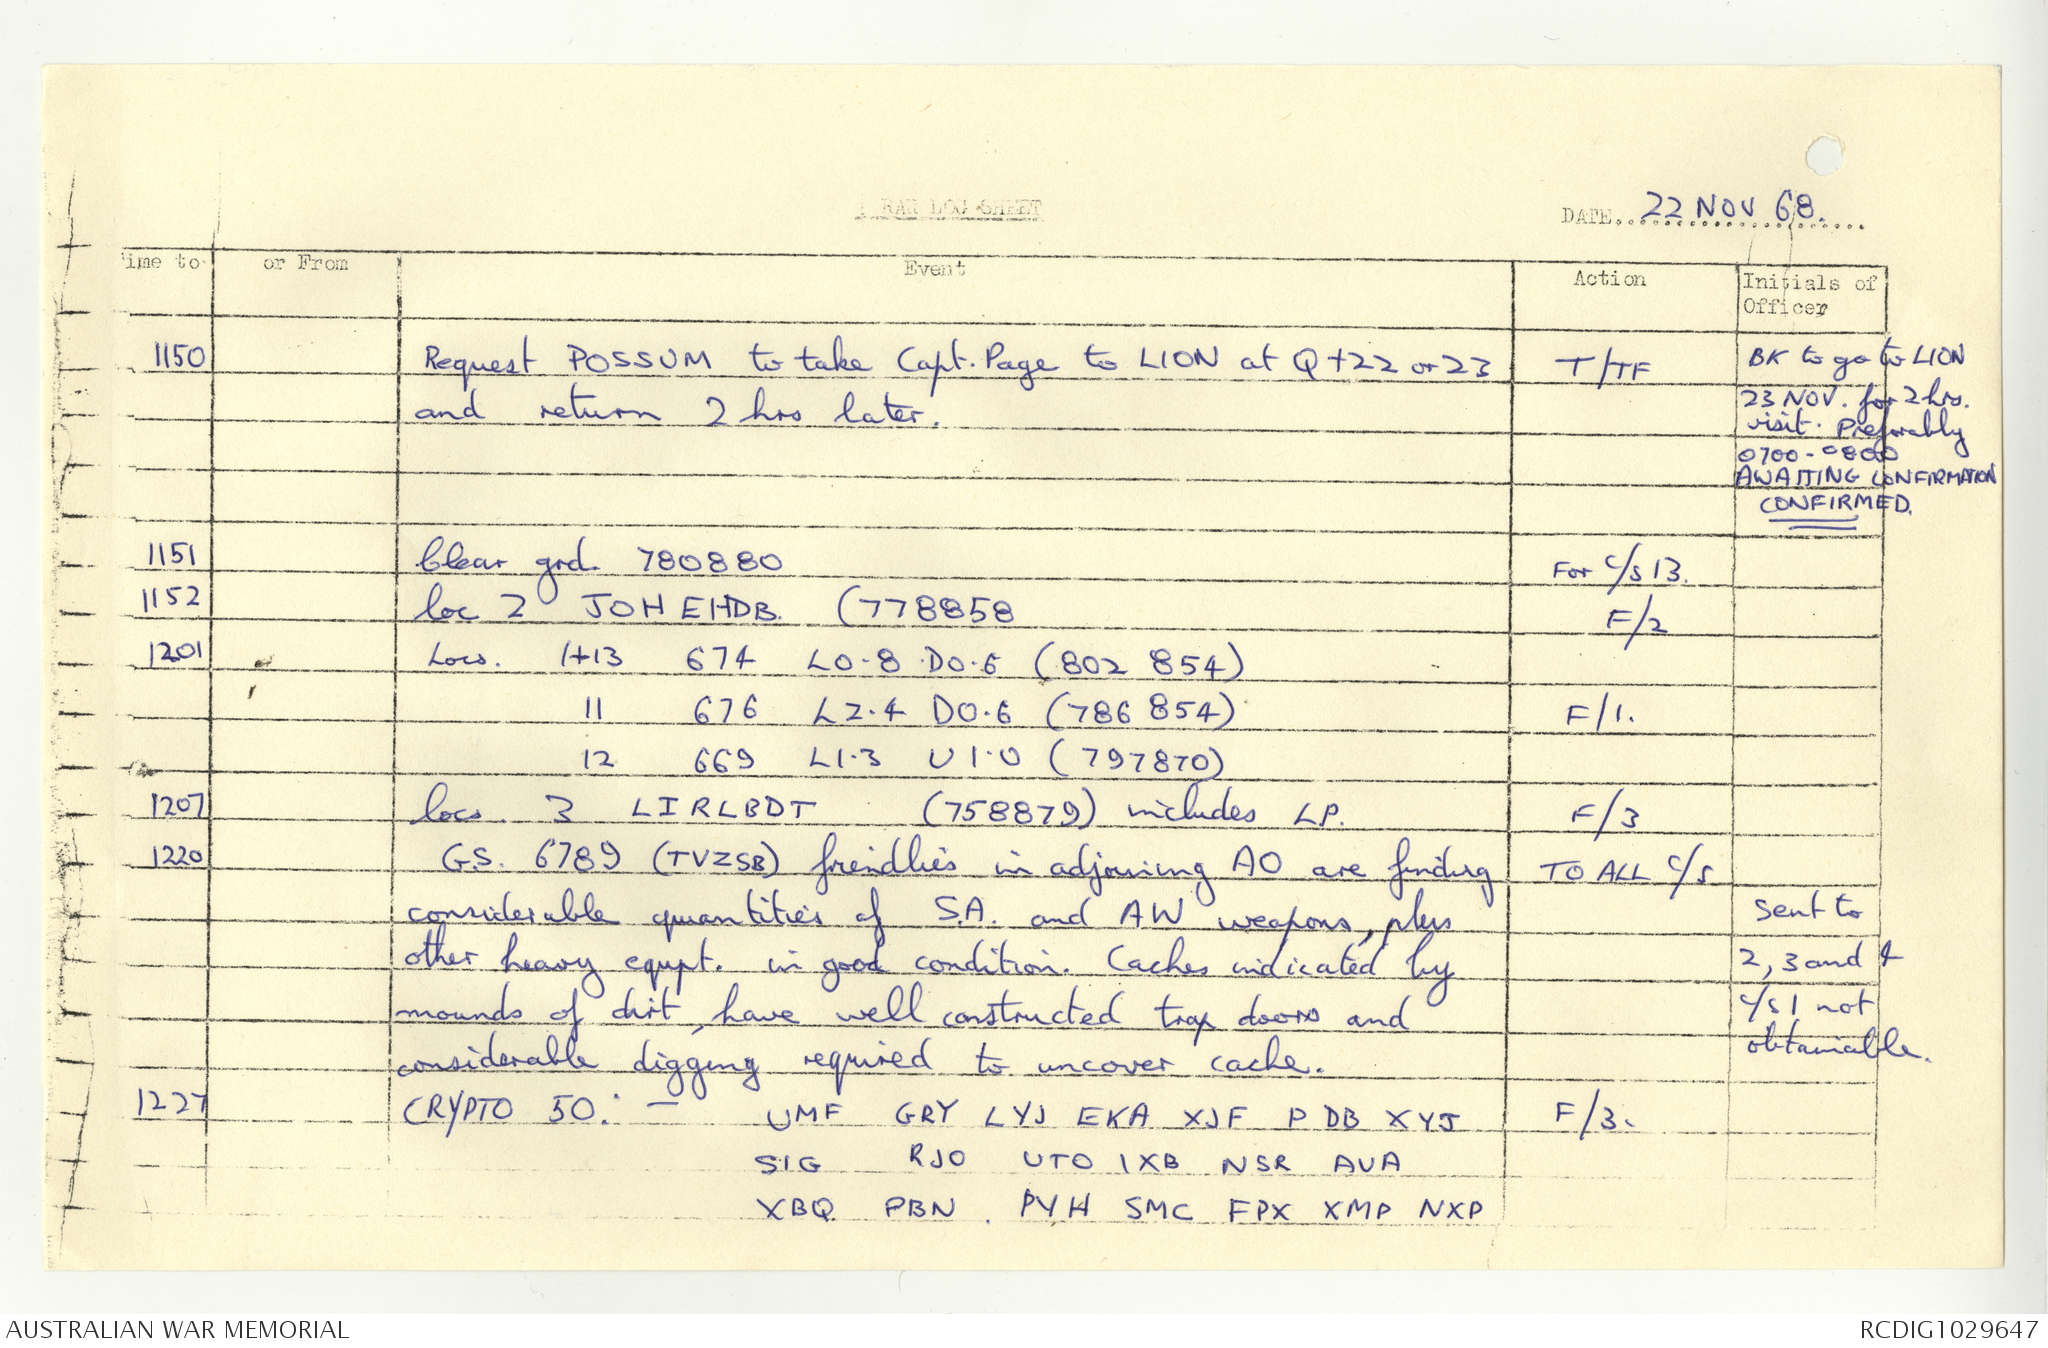 1 RAR LOG SHEET
DATE 22 NOV 68.
Time to or From Event Action Initials of Officer
1150 Request POSSUM to take Capt. Page to LION at Q+22 or 23 T/TF BK to go to LION
and return 2 hrs later. 23 NOV. for 2 hrs.
visit. Preferably
0700-0800
AWAITING CONFIRMATION
CONFIRMED.
1151 Clear grd. 780880 For C/S 13.
1152 loc 2 JOH EHDB. (778858 F/2
1201 Locs. 1+13 674 L0.8 D0.6 (802 854)
11 676 L2.4 D0.6 (786 854) F/1.
12 669 L1.3 U1.0 (797870)
1207 locs. 3 LIRLBDT (758879) includes LP. F/3
1220 GS. 6789 (TVZSB) friendlies in adjoining AO are finding TO ALL C/S
considerable quantities of S.A. and AW weapons, plus Sent to
other heavy equpt. in good condition. Caches indicated by 2, 3 and 4
mounds of dirt, have well constructed trap doors and C/S 1 not
considerable digging required to uncover cache. obtainable.
1227 CRYPTO 50:- UMF GRY LYJ EKA XJF PDB XYJ F/3.
SIG RJO UTO IXB NSR AUA
XBQ PBN. PYH SMC FPX XMP NXP
AUSTRALIAN WAR MEMORIAL RCDIG1029647